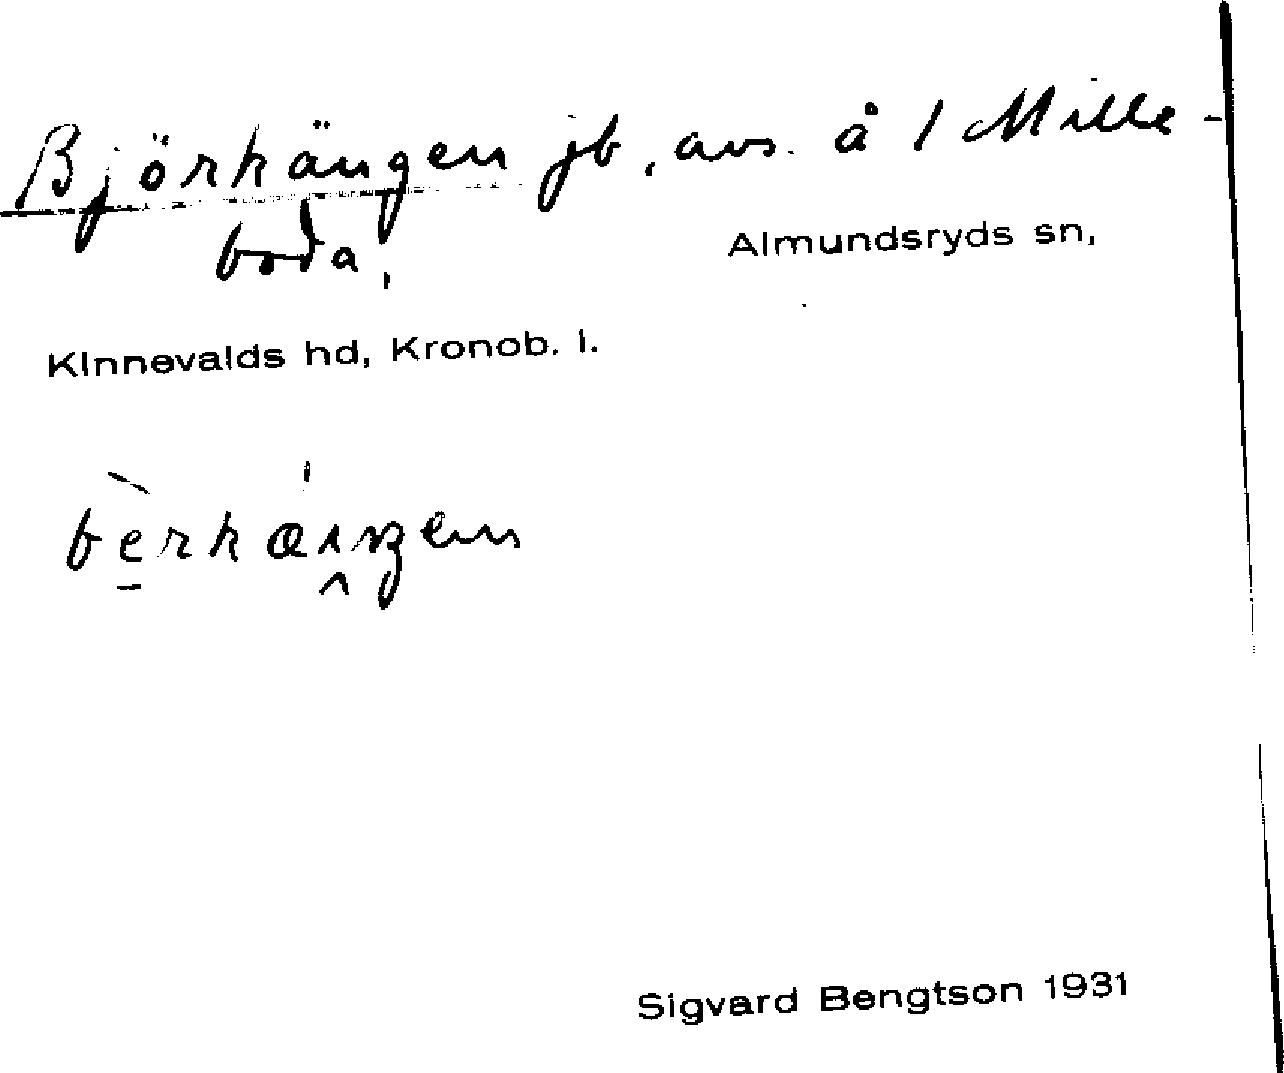 Björkängen jb, avs. å 1 Mille-
boda,
Almundsryds sn,
Kinnevalds hd, Kronob. l.
Sigvard Bengtson 1931